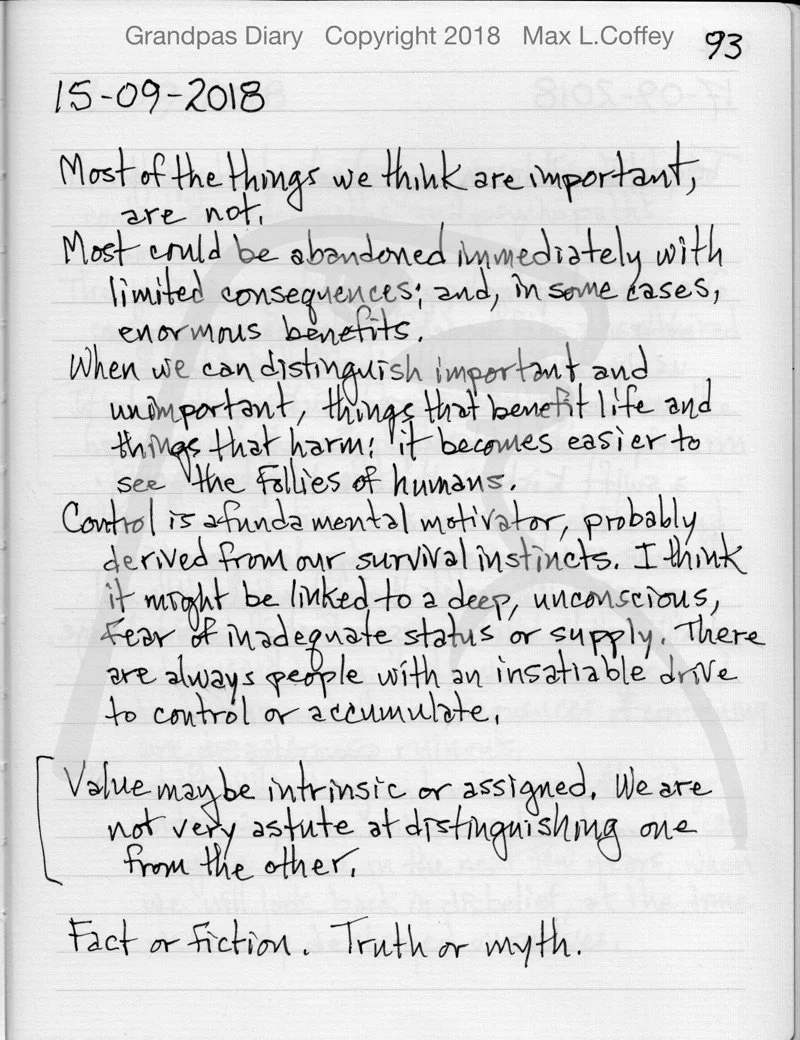 Grandpas Diary Copyright 2018 Max L.Coffey 93
15-09-2018
Most of the things we think are important,
are not.
Most could be abandoned immediately with
limited consequences; and, in some cases,
enormous benefits.
When we can distinguish important and
unimportant, things that benefit life and
things that harm; it becomes easier to
see the follies of humans.
Control is a fundamental motivator, probably
derived from our survival instincts. I think
it might be linked to a deep, unconscious,
fear of inadequate status or supply. There
are always people with an insatiable drive
to control or accumulate.
Value maybe intrinsic or assigned. We are
not very astute at distinguishing one
from the other.
Fact or fiction. Truth or myth.